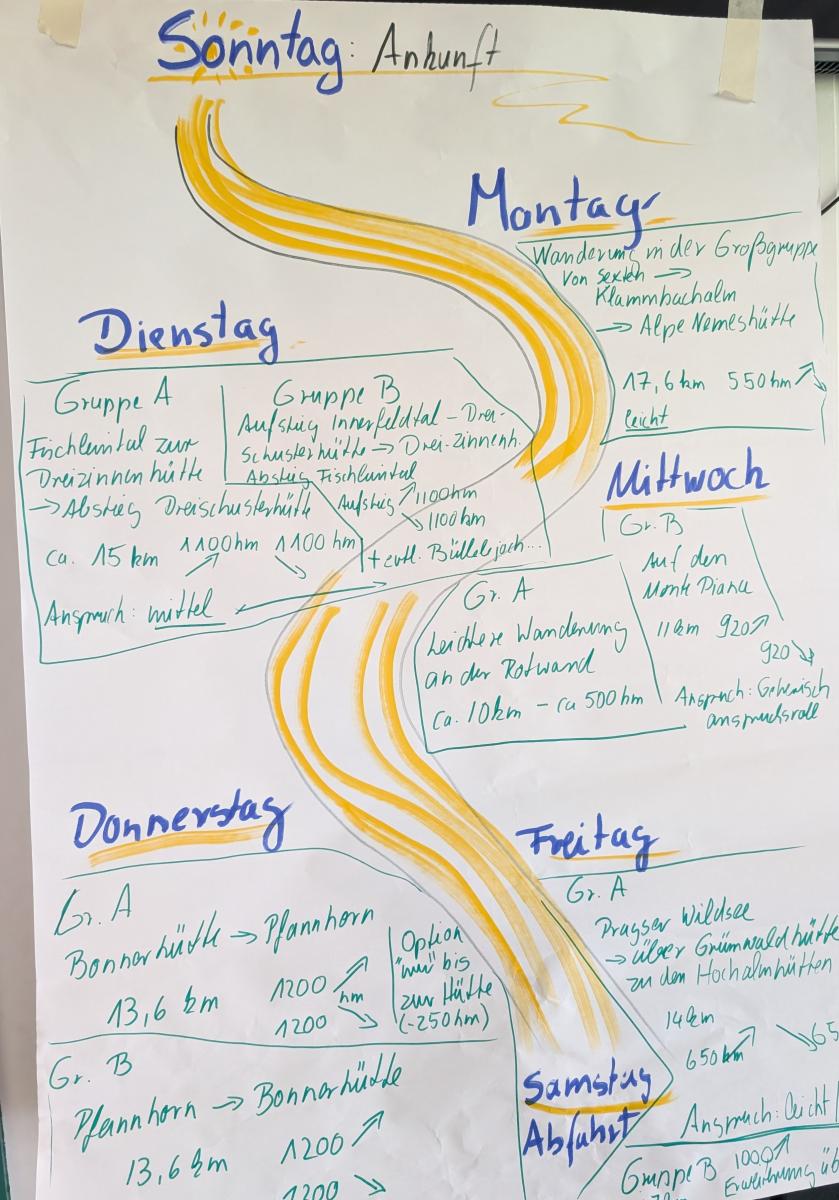 Sonntag: Ankunft
Montag
Wanderung in der Großgruppe
Von Sexten →
Klammbachalm
→ Alpe Nemeshütte
17,6 km 550 hm ↗↘
leicht
Dienstag
Gruppe A
Fischleintal zur
Dreizinnenhütte
→ Abstieg Dreischusterhütte
ca. 15 km 1100hm ↗ 1100 hm ↘
Anspruch: mittel
Gruppe B
Aufstieg Innerfeldtal – Drei-
Schusterhütte → Drei-zinnenh.
Abstieg Fischleintal
Aufstieg ↗ 1100hm
↘ 1100hm
+ evtl. Büllelejoch...
Mittwoch
Gr. B
Auf den
Monte Piana
11 km 920 ↗
920 ↘
Anspruch: Gehenisch
anspruchsvoll
Gr. A
Leichtere Wanderung
an der Rotwand
Ca. 10km – ca 500 hm
Donnerstag
Gr. A
Bonnerhütte → Pfannhorn
13,6 km 1200 ↗
hm
1200 ↘
Option
"nur" bis
zur Hütte
(-250hm)
Gr. B
Pfannhorn → Bonnerhütte
13,6 km 1200 ↗
1200 ↘
Freitag
Gr. A
Pragser Wildsee
→ über Grünwaldhütte
zu den Hochalmhütten
14 km
650 hm ↗ ↘ 65
Anspruch: leicht /
Gruppe B 1000 ↗
Erweiterung üb
Samstag
Abfahrt